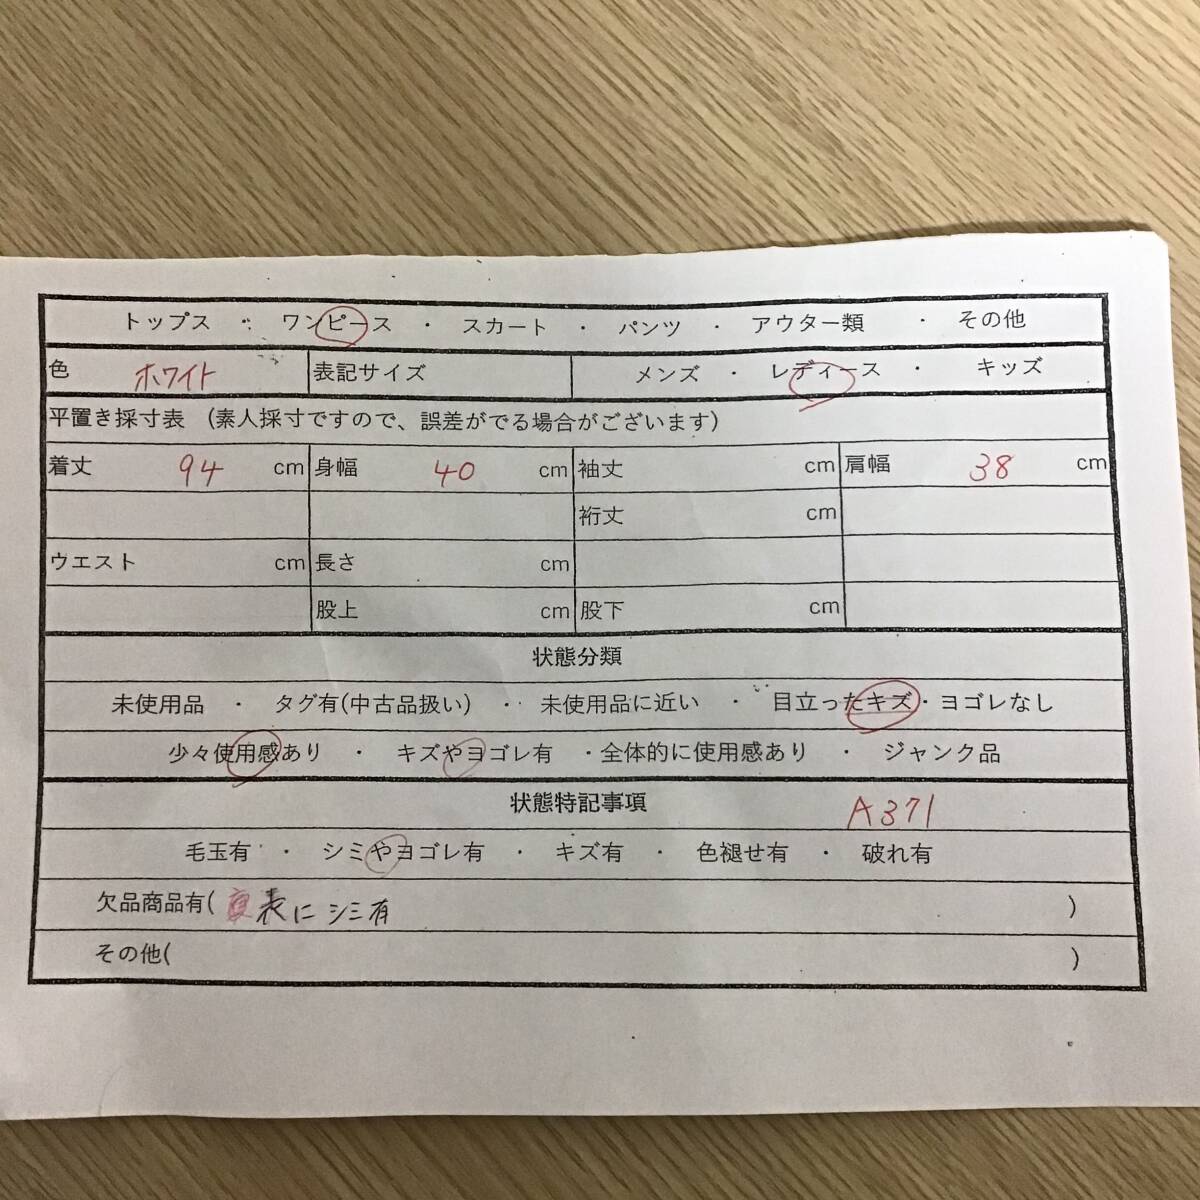 トップス ・ ワンピース ・ スカート ・ パンツ ・ アウター類 ・ その他
色 ホワイト 表記サイズ メンズ ・ レディース ・ キッズ
平置き採寸表 (素人採寸ですので、誤差がでる場合がございます)
着丈 94 cm 身幅 40 cm 袖丈 cm 肩幅 38 cm
裄丈 cm
ウエスト cm 長さ cm
股上 cm 股下 cm
状態分類
未使用品 ・ タグ有(中古品扱い) ・ 未使用品に近い ・ 目立ったキズ・ヨゴレなし
少々使用感あり ・ キズやヨゴレ有 ・全体的に使用感あり ・ ジャンク品
状態特記事項 A371
毛玉有 ・ シミやヨゴレ有 ・ キズ有 ・ 色褪せ有 ・ 破れ有
欠品商品有( 表にシミ有 )
その他( )